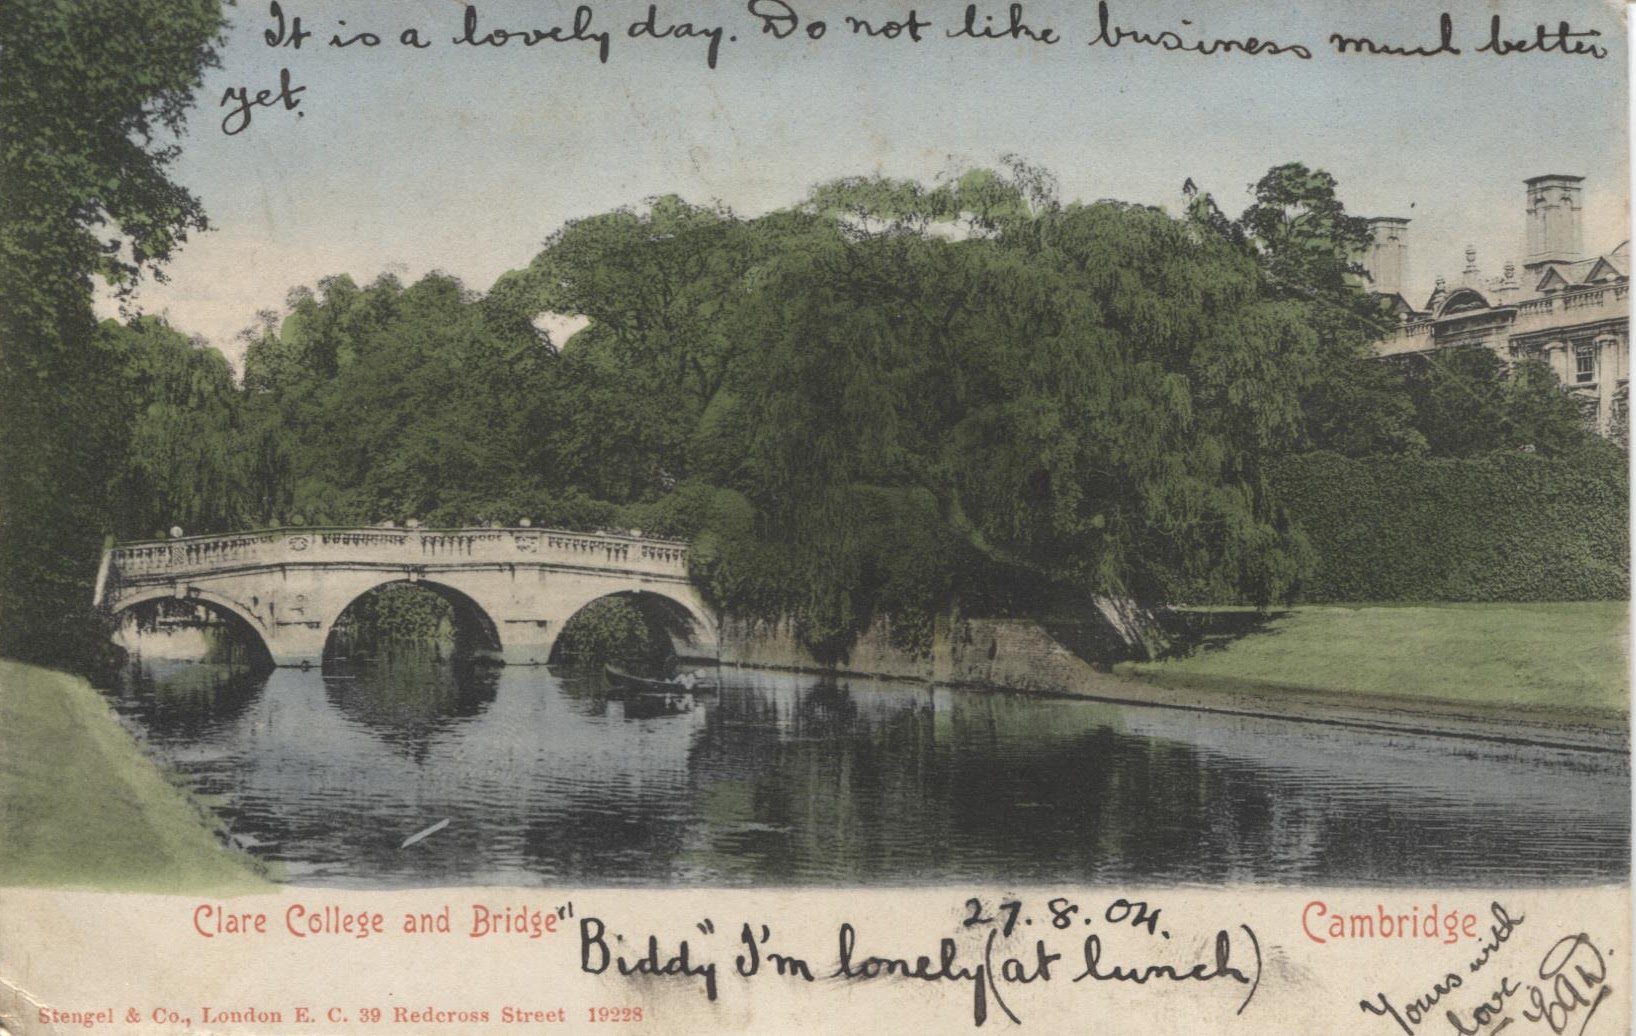 It is a lovely day. Do not like business much better
yet.
Clare College and Bridge
27. 8. 04.
Cambridge
"Biddy" I'm lonely (at lunch)
Yours with
love
Stengel & Co., London E. C. 39 Redcross Street 19228